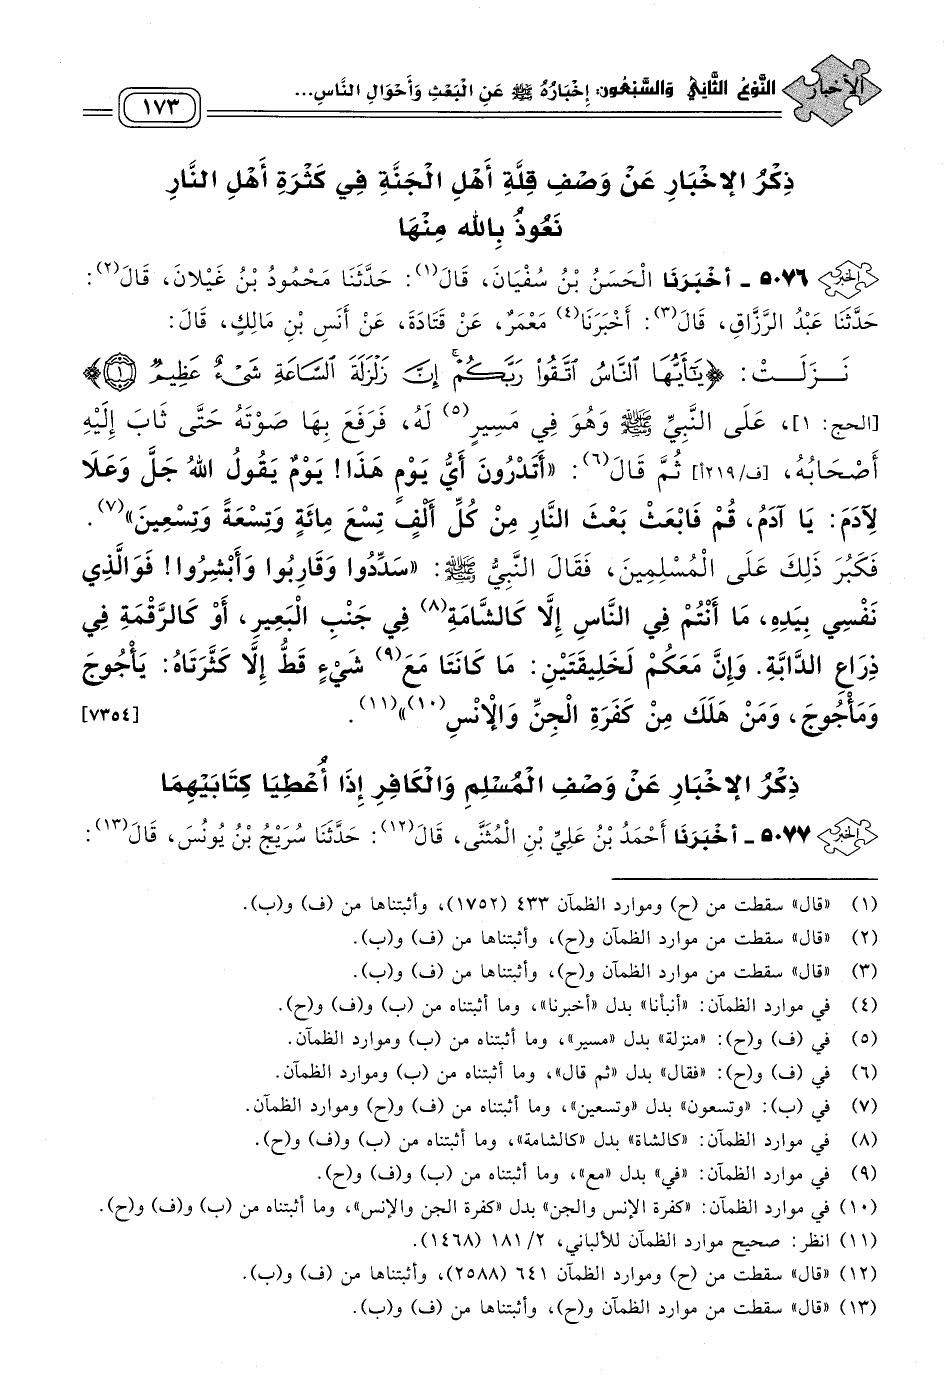 الأخبار
النَّوْعُ الثَّانِي وَالسَّبْعُونَ: إِخْبَارُهُ ﷺ عَنِ الْبَعْثِ وَأَحْوَالِ النَّاسِ...
١٧٣
ذِكْرُ الإِخْبَارِ عَنْ وَصْفِ قِلَّةِ أَهْلِ الْجَنَّةِ فِي كَثْرَةِ أَهْلِ النَّارِ
نَعُوذُ بِاللهِ مِنْهَا
٥٠٧٦ - أَخْبَرَنَا الْحَسَنُ بْنُ سُفْيَانَ، قَالَ(١): حَدَّثَنَا مَحْمُودُ بْنُ غَيْلانَ، قَالَ(٢):
حَدَّثَنَا عَبْدُ الرَّزَّاقِ، قَالَ(٣): أَخْبَرَنَا(٤) مَعْمَرٌ، عَنْ قَتَادَةَ، عَنْ أَنَسِ بْنِ مَالِكٍ، قَالَ:
نَزَلَتْ: ﴿يَٰٓأَيُّهَا ٱلنَّاسُ ٱتَّقُوا۟ رَبَّكُمْ ۚ إِنَّ زَلْزَلَةَ ٱلسَّاعَةِ شَىْءٌ عَظِيمٌ ١﴾
[الحج: ١]، عَلَى النَّبِيِّ ﷺ وَهُوَ فِي مَسِيرٍ(٥) لَهُ، فَرَفَعَ بِهَا صَوْتَهُ حَتَّى ثَابَ إِلَيْهِ
أَصْحَابُهُ، [ف/٢١٩أ] ثُمَّ قَالَ(٦): «أَتَدْرُونَ أَيُّ يَوْمٍ هَذَا! يَوْمٌ يَقُولُ اللهُ جَلَّ وَعَلَا
لِآدَمَ: يَا آدَمُ، قُمْ فَابْعَثْ بَعْثَ النَّارِ مِنْ كُلِّ أَلْفٍ تِسْعَ مِائَةٍ وَتِسْعَةً وَتِسْعِينَ»(٧).
فَكَبُرَ ذَلِكَ عَلَى الْمُسْلِمِينَ، فَقَالَ النَّبِيُّ ﷺ: «سَدِّدُوا وَقَارِبُوا وَأَبْشِرُوا! فَوَالَّذِي
نَفْسِي بِيَدِهِ، مَا أَنْتُمْ فِي النَّاسِ إِلَّا كَالشَّامَةِ(٨) فِي جَنْبِ الْبَعِيرِ، أَوْ كَالرَّقْمَةِ فِي
ذِرَاعِ الدَّابَّةِ. وَإِنَّ مَعَكُمْ لَخَلِيقَتَيْنِ: مَا كَانَتَا مَعَ(٩) شَيْءٍ قَطُّ إِلَّا كَثَّرَتَاهُ: يَأْجُوجَ
وَمَأْجُوجَ، وَمَنْ هَلَكَ مِنْ كَفَرَةِ الْجِنِّ وَالْإِنْسِ(١٠)»(١١). [٧٣٥٤]
ذِكْرُ الإِخْبَارِ عَنْ وَصْفِ الْمُسْلِمِ وَالْكَافِرِ إِذَا أُعْطِيَا كِتَابَيْهِمَا
٥٠٧٧ - أَخْبَرَنَا أَحْمَدُ بْنُ عَلِيِّ بْنِ الْمُثَنَّى، قَالَ(١٢): حَدَّثَنَا سُرَيْجُ بْنُ يُونُسَ، قَالَ(١٣):
(١) «قال» سقطت من (ح) وموارد الظمآن ٤٣٣ (١٧٥٢)، وأثبتناها من (ف) و(ب).
(٢) «قال» سقطت من موارد الظمآن و(ح)، وأثبتناها من (ف) و(ب).
(٣) «قال» سقطت من موارد الظمآن و(ح)، وأثبتناها من (ف) و(ب).
(٤) في موارد الظمآن: «أنبأنا» بدل «أخبرنا»، وما أثبتناه من (ب) و(ف) و(ح).
(٥) في (ف) و(ح): «منزلة» بدل «مسير»، وما أثبتناه من (ب) وموارد الظمآن.
(٦) في (ف) و(ح): «فقال» بدل «ثم قال»، وما أثبتناه من (ب) وموارد الظمآن.
(٧) في (ب): «وتسعون» بدل «وتسعين»، وما أثبتناه من (ف) و(ح) وموارد الظمآن.
(٨) في موارد الظمآن: «كالشاة» بدل «كالشامة»، وما أثبتناه من (ب) و(ف) و(ح).
(٩) في موارد الظمآن: «في» بدل «مع»، وما أثبتناه من (ب) و(ف) و(ح).
(١٠) في موارد الظمآن: «كفرة الإنس والجن» بدل «كفرة الجن والإنس»، وما أثبتناه من (ب) و(ف) و(ح).
(١١) انظر: صحيح موارد الظمآن للألباني، ٢/ ١٨١ (١٤٦٨).
(١٢) «قال» سقطت من (ح) وموارد الظمآن ٦٤١ (٢٥٨٨)، وأثبتناها من (ف) و(ب).
(١٣) «قال» سقطت من موارد الظمآن و(ح)، وأثبتناها من (ف) و(ب).